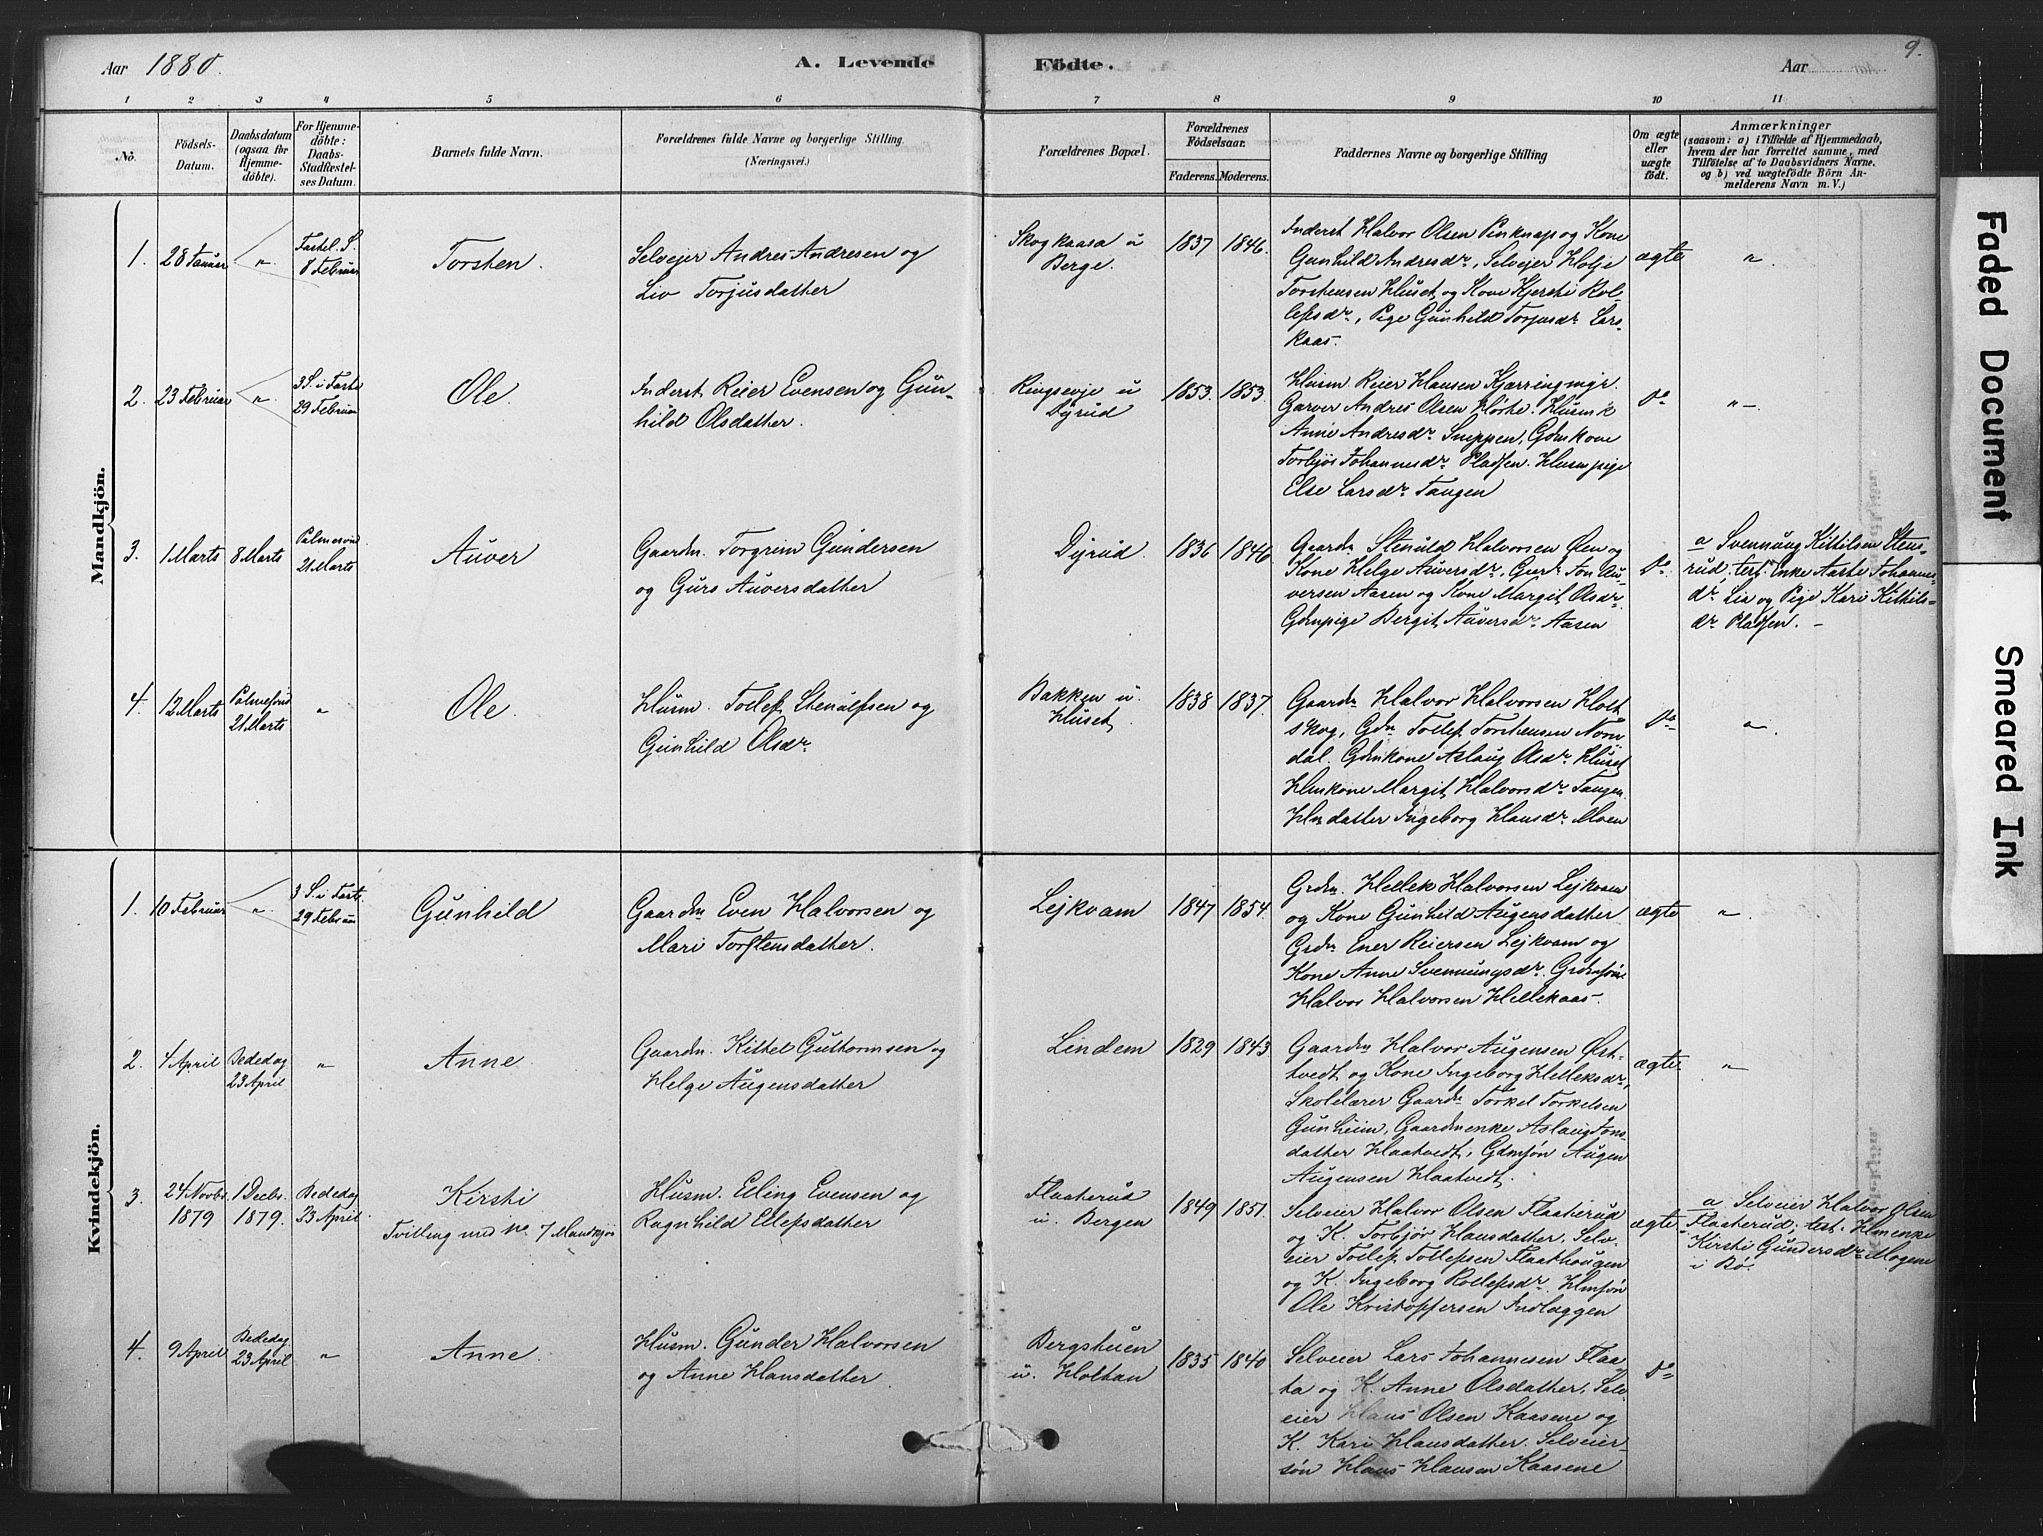 Aar 1880.
A. Levende Födte.
Aar
9.
1 2 3 4 5 6 7 8 9 10 11
No.
Födsels-
Datum.
Daabsdatum
(ogsaa for
Hjemme-
döbte).
For Hjemme-
döbte:
Daabs-
Stadfæstel-
ses Datum.
Barnets fulde Navn.
Forældrenes fulde Navne og borgerlige Stilling.
(Næringsvei.)
Forældrenes Bopæl.
Forældrenes
Födselsaar.
Faderens. Moderens.
Faddernes Navne og borgerlige Stilling
Om ægte
eller
uægte
födt.
Anmærkninger
(saasom: a) i Tilfælde af Hjemmedaab,
hvem der har forrettet samme, med
Tilföielse af to Daabsvidners Navne.
og b) ved uægtefödte Börn An-
melderens Navn m. V.)
Mandkjön.
1.
28 Januar
"
Fastel. S.
8 Februar
Torsten.
Selvejer Andres Andresen og
Liv Torjusdatter
Skogkaasa u
Berge.
1837
1846.
Inderst Halvor Olsen Pinknap og Kone
Gunhild Andresdr, Selvejer Holje
Torstensen Huset og Kone Kjersti Rol-
lefsdr, Pige Gunhild Torjusdr Lars-
kaas.
ægte
"
2.
23 Februar
"
3 S. i Faste
29 Februar
Ole
Inderst Reier Evensen og Gun-
hild Olsdatter.
Ringsevje u
Dyrud
1853.
1853.
Husm. Reier Hansen Kjærringmyr.
Garver Andres Olsen Klørte. Husm k
Anne Andresdr Snippen, Gdmkone
Torbjør Johannesdr Pladsen. Husmpige
Else Larsdr Tangen
Do
"
3.
1 Marts
8 Marts
Palmesønd
21 Marts
Auver
Gaardm. Torgrim Gundersen
og Gurs Auversdatter
Dyrud.
1836
1846
Gaardm Stenuld Halvorsen Øen og
Kone Helge Auversdr, Gmdr Jon Au-
versen Aasen og Kone Margit Olsdr.
Gdmpige Bergit Auversdr Aasen
Do
a Svennung Kittilsen Sten-
rud, test. Enke Aaste Johannes-
dr Lia og Pige Kari Kittils-
dr Pladsen. –
4.
12 Marts
Palmesønd
21 Marts
"
Ole.
Husm. Tollef Stenulfsen og
Gunhild Olsdr
Bakken u.
Huset.
1838
1837.
Gaardm Halvor Halvorsen Holt
skog, Gdm Tollef Torstensen Norn
dal. Gdmkone Aslaug Olsdr Huset
Hmkone Margit Halvorsdr Tangen.
Hmdatter Ingeborg Hansdr Moen
Do
"
Kvindekjön.
1.
10 Februar
"
3 S. i Faste
29 Februar
Gunhild
Gaardm Even Halvorsen og
Mari Torstensdatter.
Lejkvam
1847
1854.
Grdm. Hellek Halvorsen Lejkvam
og Kone Gunhild Augensdatter
Grdm Ener Reiersen Lejkvam og
Kone Anne Svennungsdr. Grdmsøn
Halvor Halvorsen Hellekaas.
ægte
"
2.
4 April
Bededag
23 April
"
Anne
Gaardm. Kittel Guttormsen og
Helge Augensdatter
Lindem
1829
1843
Gaardm Halvor Augensen Øst-
tvedt og Kone Ingeborg Helleksdr,
Skolelærer Gaardm Torkel Torkelsen
Gunheim, Gaardmenke Aslaug Jons-
datter Haatvedt, Gdmsøn Augen
Augensen Haatvedt.
ægte
"
3.
24 Novbr.
1879
1 Decbr.
1879.
Bededag
23 April.
Kirsti
Tvilling med No 7 Mandkjøn
Husm. Elling Evensen og
Ragnhild Ellefsdatter
Flaaterud
u. Bergen
1849
1851.
Selveier Halvor Olsen Flaaterud
og K. Torbjør Hansdatter. Selv-
eier Tollef Tollefsen Flaathaugen
og K. Ingeborg Rollefsdr. Hmsøn
Ole Kristoffersen Indlæggen
ægte
a Selveier Halvor Olsen
Flaaterud; test. Hmenke
Kirsti Gundersdr Mogene
i Bø.
4.
9 April
Bededag
23 April
"
Anne.
Husm. Gunder Halvorsen
og Anne Hansdatter
Bergstuen
u. Holtan
1835
1840
Selveier Lars Johannesen Flaa-
ta og K. Anne Olsdatter. Selv-
eier Hans Olsen Kaasene og
K. Kari Hansdatter. Selveier-
søn Hans Hansen Kaasene
Do
Faded Document
Smeared Ink